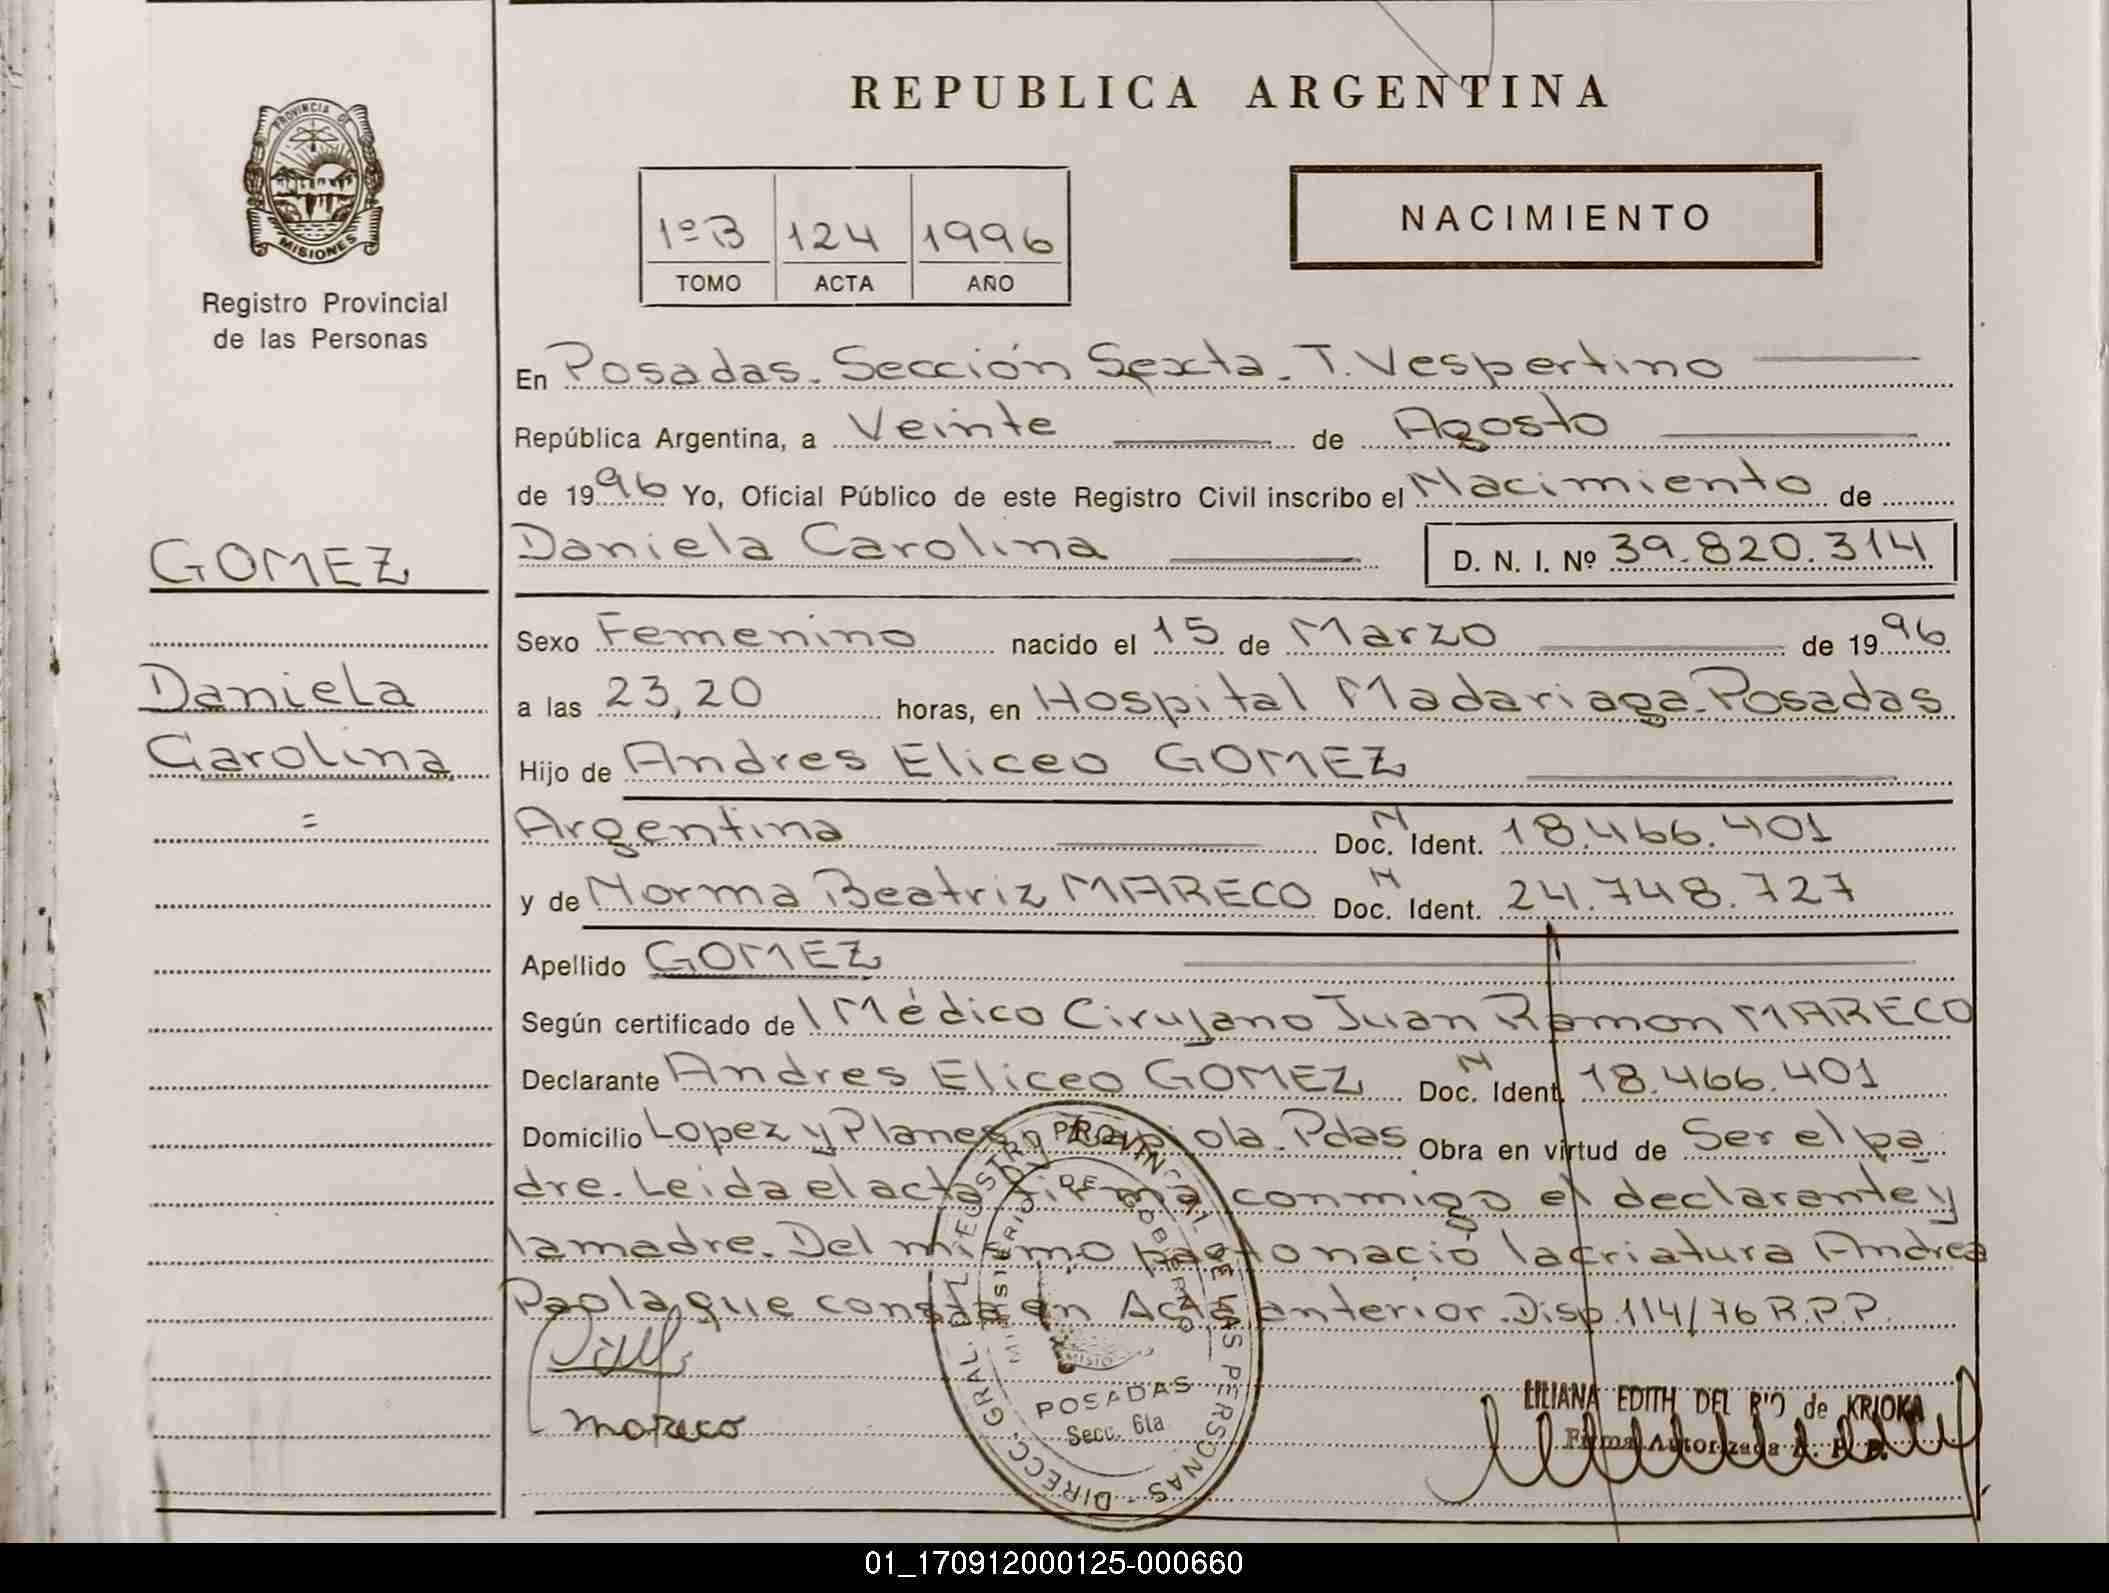 REPUBLICA ARGENTINA
PROVINCIA DE
MISIONES
Registro Provincial
de las Personas
1º B 124 1996
TOMO ACTA AÑO
NACIMIENTO
En Posadas. Sección Sexta. T. Vespertino
República Argentina, a Veinte de Agosto
de 1996 Yo, Oficial Público de este Registro Civil inscribo el Nacimiento de
Daniela Carolina D. N. I. Nº 39.820.314
GOMEZ
Daniela
Carolina
=
Sexo Femenino nacido el 15 de Marzo de 1996
a las 23,20 horas, en Hospital Madariaga. Posadas
Hijo de Andres Eliceo GOMEZ
Argentina Doc. N Ident. 18.466.401
y de Norma Beatriz MARECO Doc. N Ident. 24.748.727
Apellido GOMEZ
Según certificado de l Médico Cirujano Juan Ramon MARECO
Declarante Andres Eliceo GOMEZ Doc. N Ident. 18.466.401
Domicilio Lopez y Planes y Pdas Obra en virtud de Ser el pa
dre. Leida el acta firma conmigo el declarante y
la madre. Del mismo parto nació la criatura Andrea
Paola que consta en Acta anterior. Disp. 114/76 R.P.P.
Mareco
DIRECC. GRAL. DEL REGISTRO PROVINCIAL DE LAS PERSONAS
MINISTERIO DE GOBIERNO
POSADAS
Secc. 6ta
LILIANA EDITH DEL RIO de KRIOKA
Firma Autorizada
01_170912000125-000660